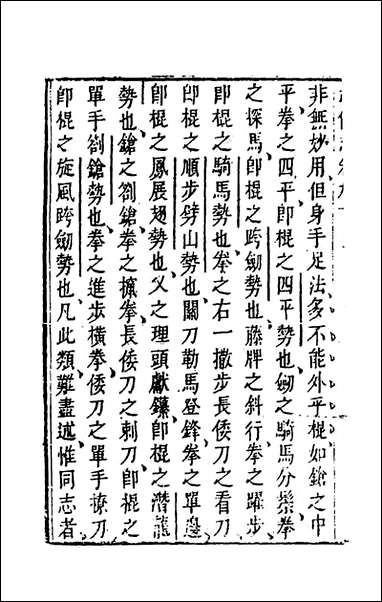 非無妙用但身手足法多不能外乎棍如鎗之中
平拳之四平即棍之四平勢也劒之騎馬分鬃拳
之探馬即棍之跨劒勢也藤牌之斜行拳之躍步
即棍之騎馬勢也拳之右一撒步長倭刀之看刀
即棍之順步劈山勢也關刀勒馬登鋒拳之單邊
即棍之鳳展翅勢也叉之理頭獻鑽即棍之潛龍
勢也鎗之劄鎗拳之攛拳長倭刀之刺刀即棍之
單手劄鎗勢也拳之進步橫拳倭刀之單手撩刀
即棍之旋風跨劒勢也凡此類難盡述惟同志者